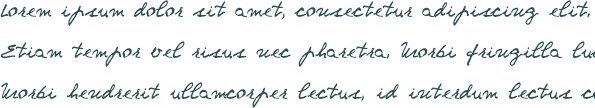 Lorem ipsum dolor sit amet, consectetur adipiscing elit,
Etiam tempor vel risus nec pharetra. Morbi fringilla
Morbi hendrerit ullamcorper lectus, id interdum lectus